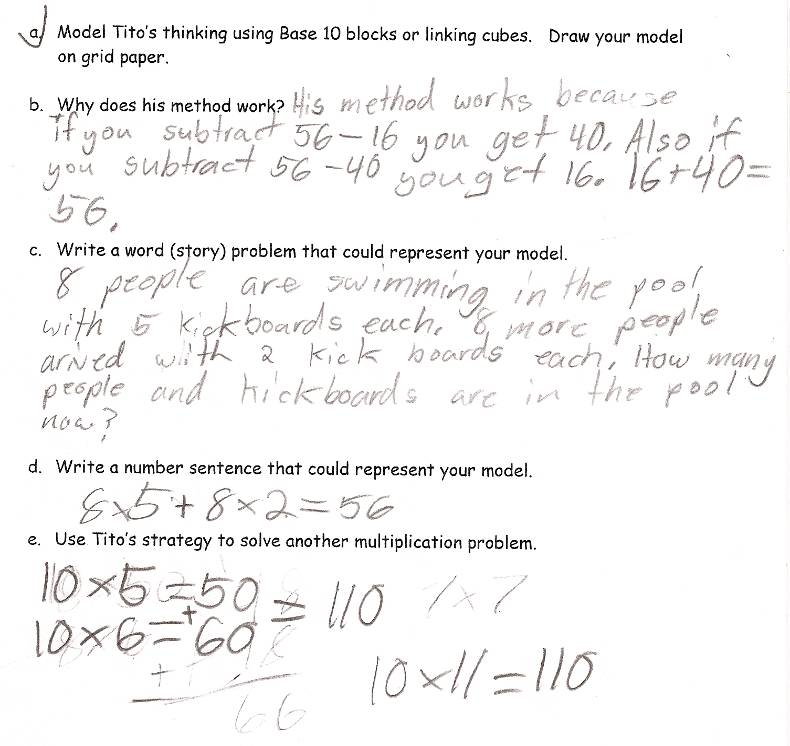 a. Model Tito's thinking using Base 10 blocks or linking cubes. Draw your model
on grid paper.
b. Why does his method work? His method works because
if you subtract 56-16 you get 40. Also if
you subtract 56-40 you get 16. 16+40=
56.
c. Write a word (story) problem that could represent your model.
8 people are swimming in the pool
with 5 kickboards each. 8 more people
arived with 2 kick boards each. How many
people and kickboards are in the pool
now?
d. Write a number sentence that could represent your model.
8x5+8x2=56
e. Use Tito's strategy to solve another multiplication problem.
10x5=50 = 110 7x7
10x6=+60
10x11=110
+
66